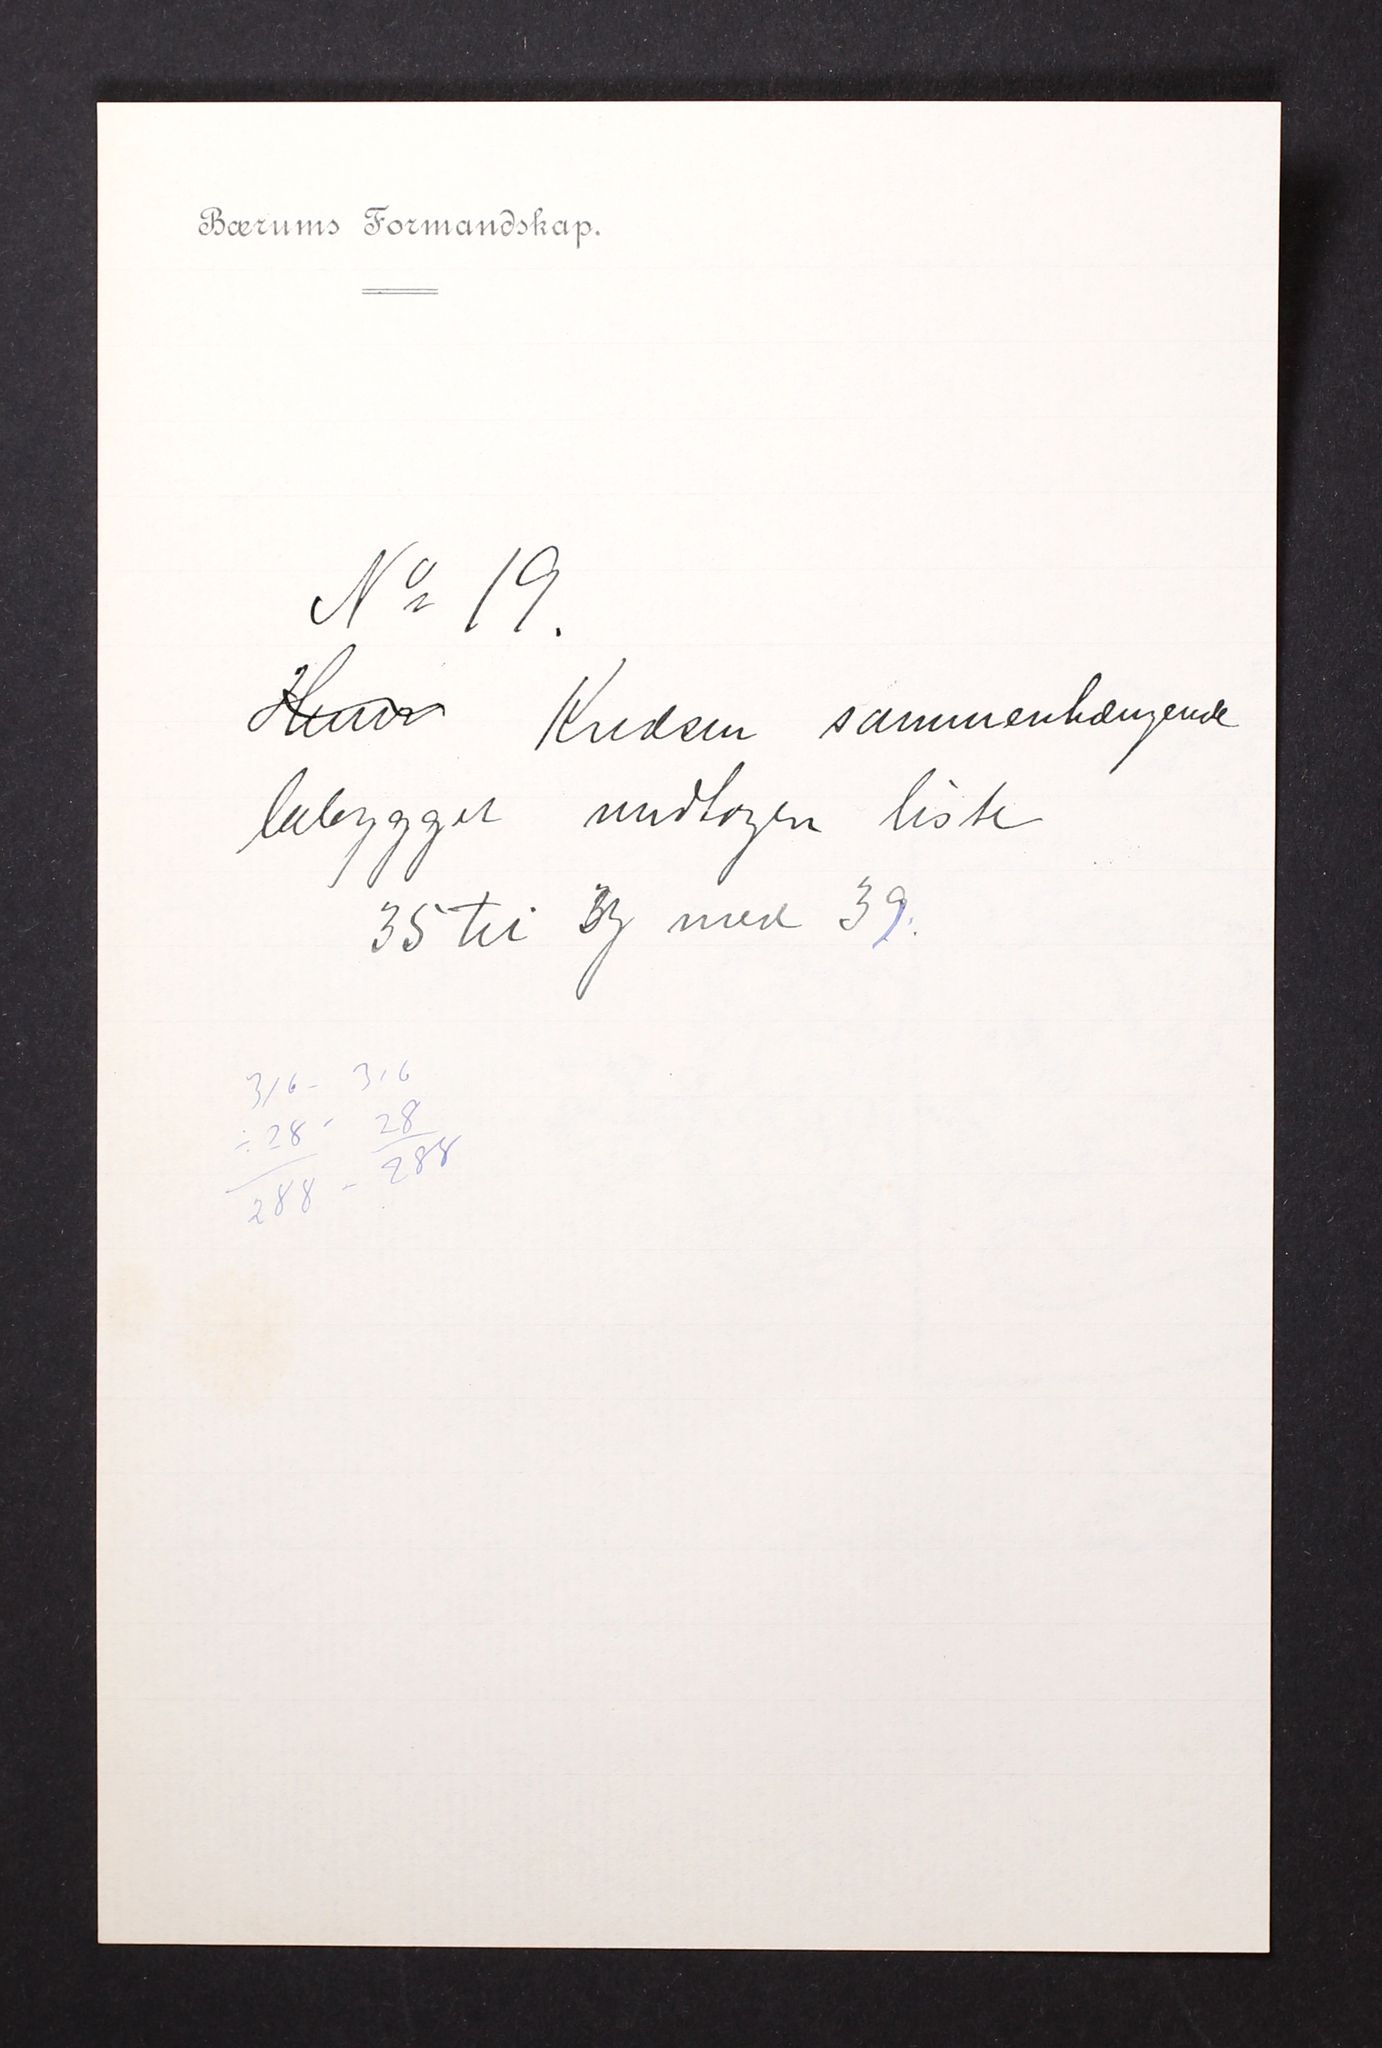 Bærums Formandskap.
No 19.
Kredsen sammenhængende
bebygget undtagen liste
35 til og med 39.
316 - 316
÷ 28 - 28
288 - 288